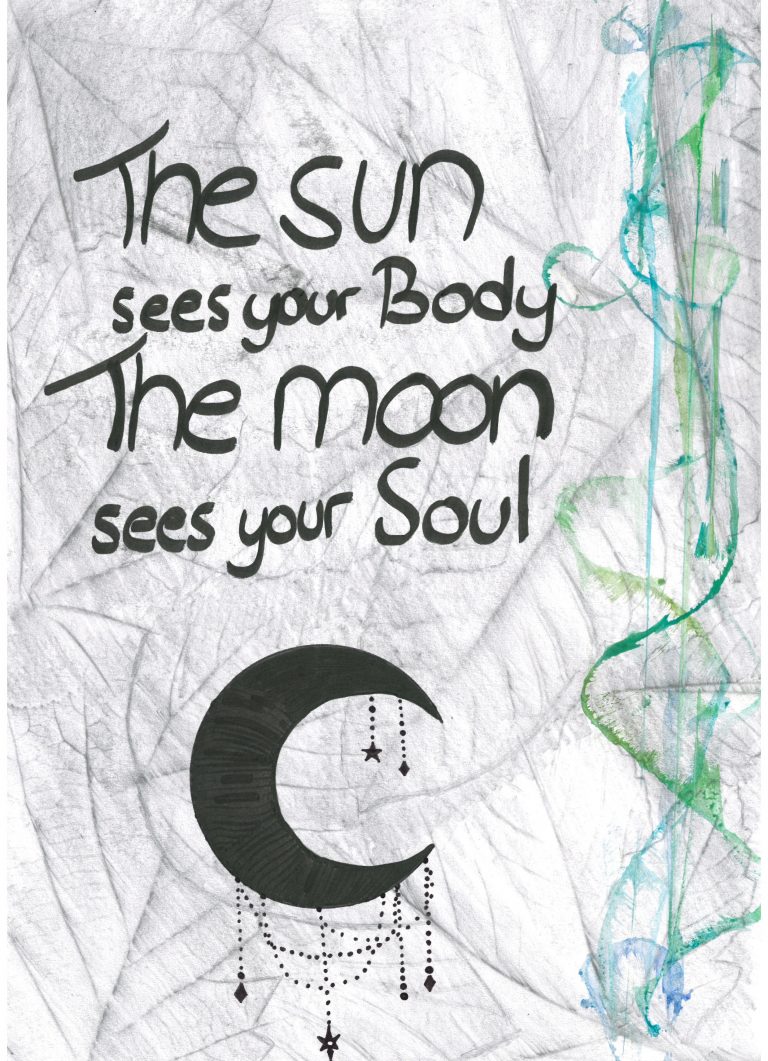 The sun
sees your Body
The moon
sees your Soul